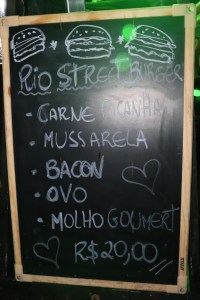 RIO STREET BURGER
• CARNE PICANHA
• MUSSARELA
• BACON
• OVO
• MOLHO GOUMERT
R$20,00